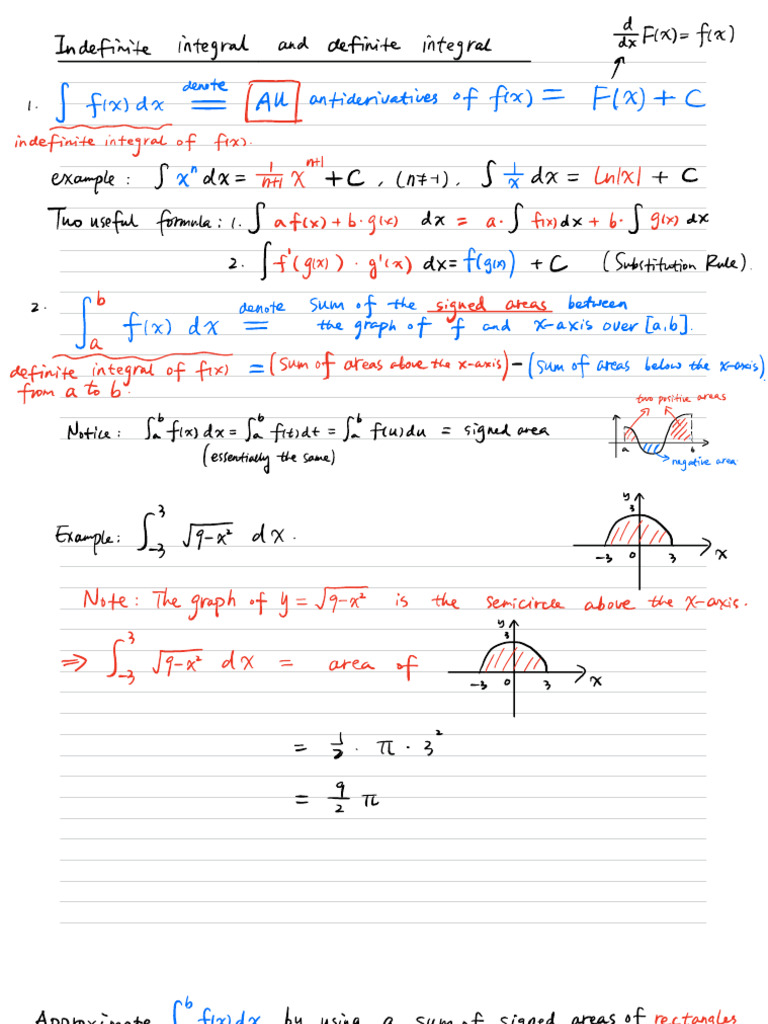 Indefinite integral and definite integral
d/dx F(x) = f(x)
1. ∫ f(x) dx denote = All antiderivatives of f(x) = F(x) + C
indefinite integral of f(x).
example: ∫ xⁿ dx = 1/(n+1) x^(n+1) + C, (n≠-1), ∫ 1/x dx = ln|x| + C
Two useful formula: 1. ∫ a f(x) + b·g(x) dx = a·∫ f(x) dx + b·∫ g(x) dx
2. ∫ f'(g(x))·g'(x) dx = f(g(x)) + C (Substitution Rule).
2. ∫_a^b f(x) dx denote = sum of the signed areas between
the graph of f and x-axis over [a,b].
definite integral of f(x) = (sum of areas above the x-axis) - (sum of areas below the x-axis)
from a to b.
two positive areas
Notice: ∫_a^b f(x) dx = ∫_a^b f(t) dt = ∫_a^b f(u) du = signed area
a b
(essentially the same)
negative area
Example: ∫_-3^3 √(9-x²) dx.
y
3
-3 0 3 x
Note: The graph of y = √(9-x²) is the semicircle above the x-axis.
⇒ ∫_-3^3 √(9-x²) dx = area of
y
3
-3 0 3 x
= 1/2 · π · 3²
= 9/2 π
Approximate ∫^b f(x) dx by using a sum of signed areas of rectangles